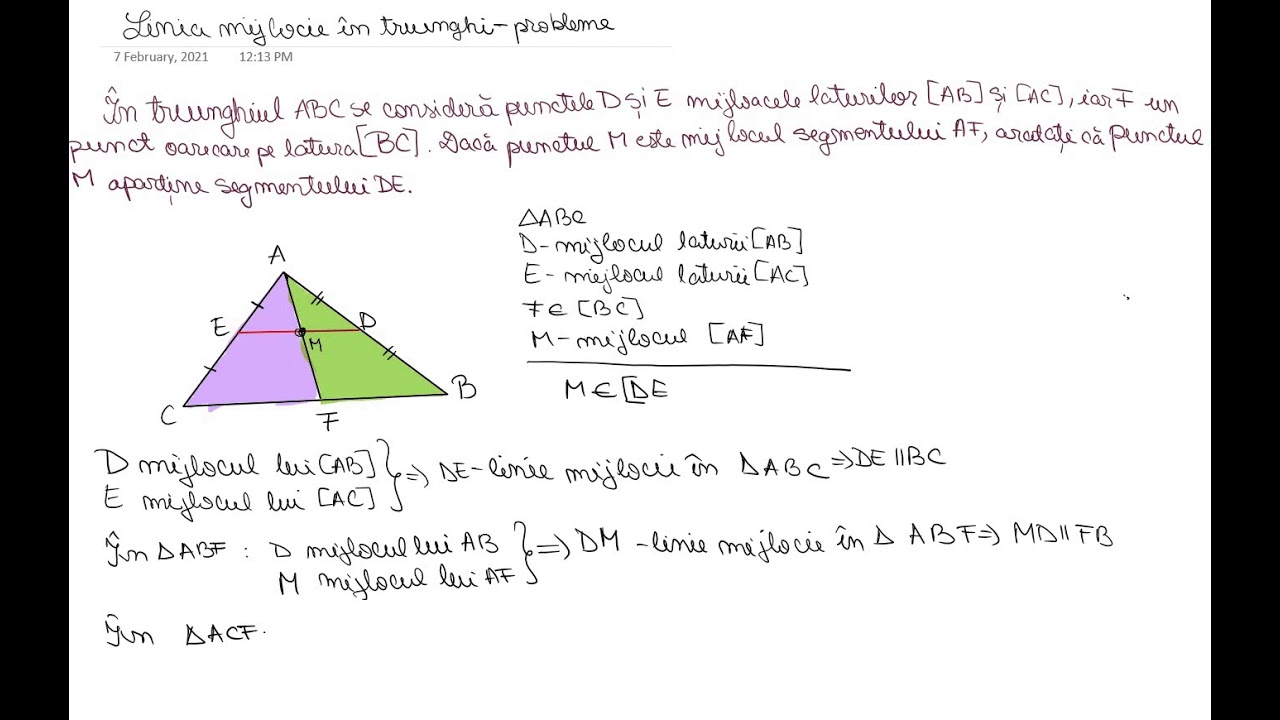 Linia mijlocie în triunghi - probleme
7 February, 2021 12:13 PM
În triunghiul ABC se consideră punctele D și E mijloacele laturilor [AB] și [AC], iar F un
punct oarecare pe latura [BC]. Dacă punctul M este mijlocul segmentului AF, arătați că punctul
M aparține segmentului DE.
ΔABC
D - mijlocul laturii [AB]
E - mijlocul laturii [AC]
F ∈ [BC]
M - mijlocul [AF]
M ∈ [DE
A
E
D
M
C
B
F
D mijlocul lui [AB] } => DE - linie mijlocie în ΔABC => DE || BC
E mijlocul lui [AC]
În ΔABF : D mijlocul lui AB } => DM - linie mijlocie în Δ ABF => MD || FB
M mijlocul lui AF
În ΔACF.